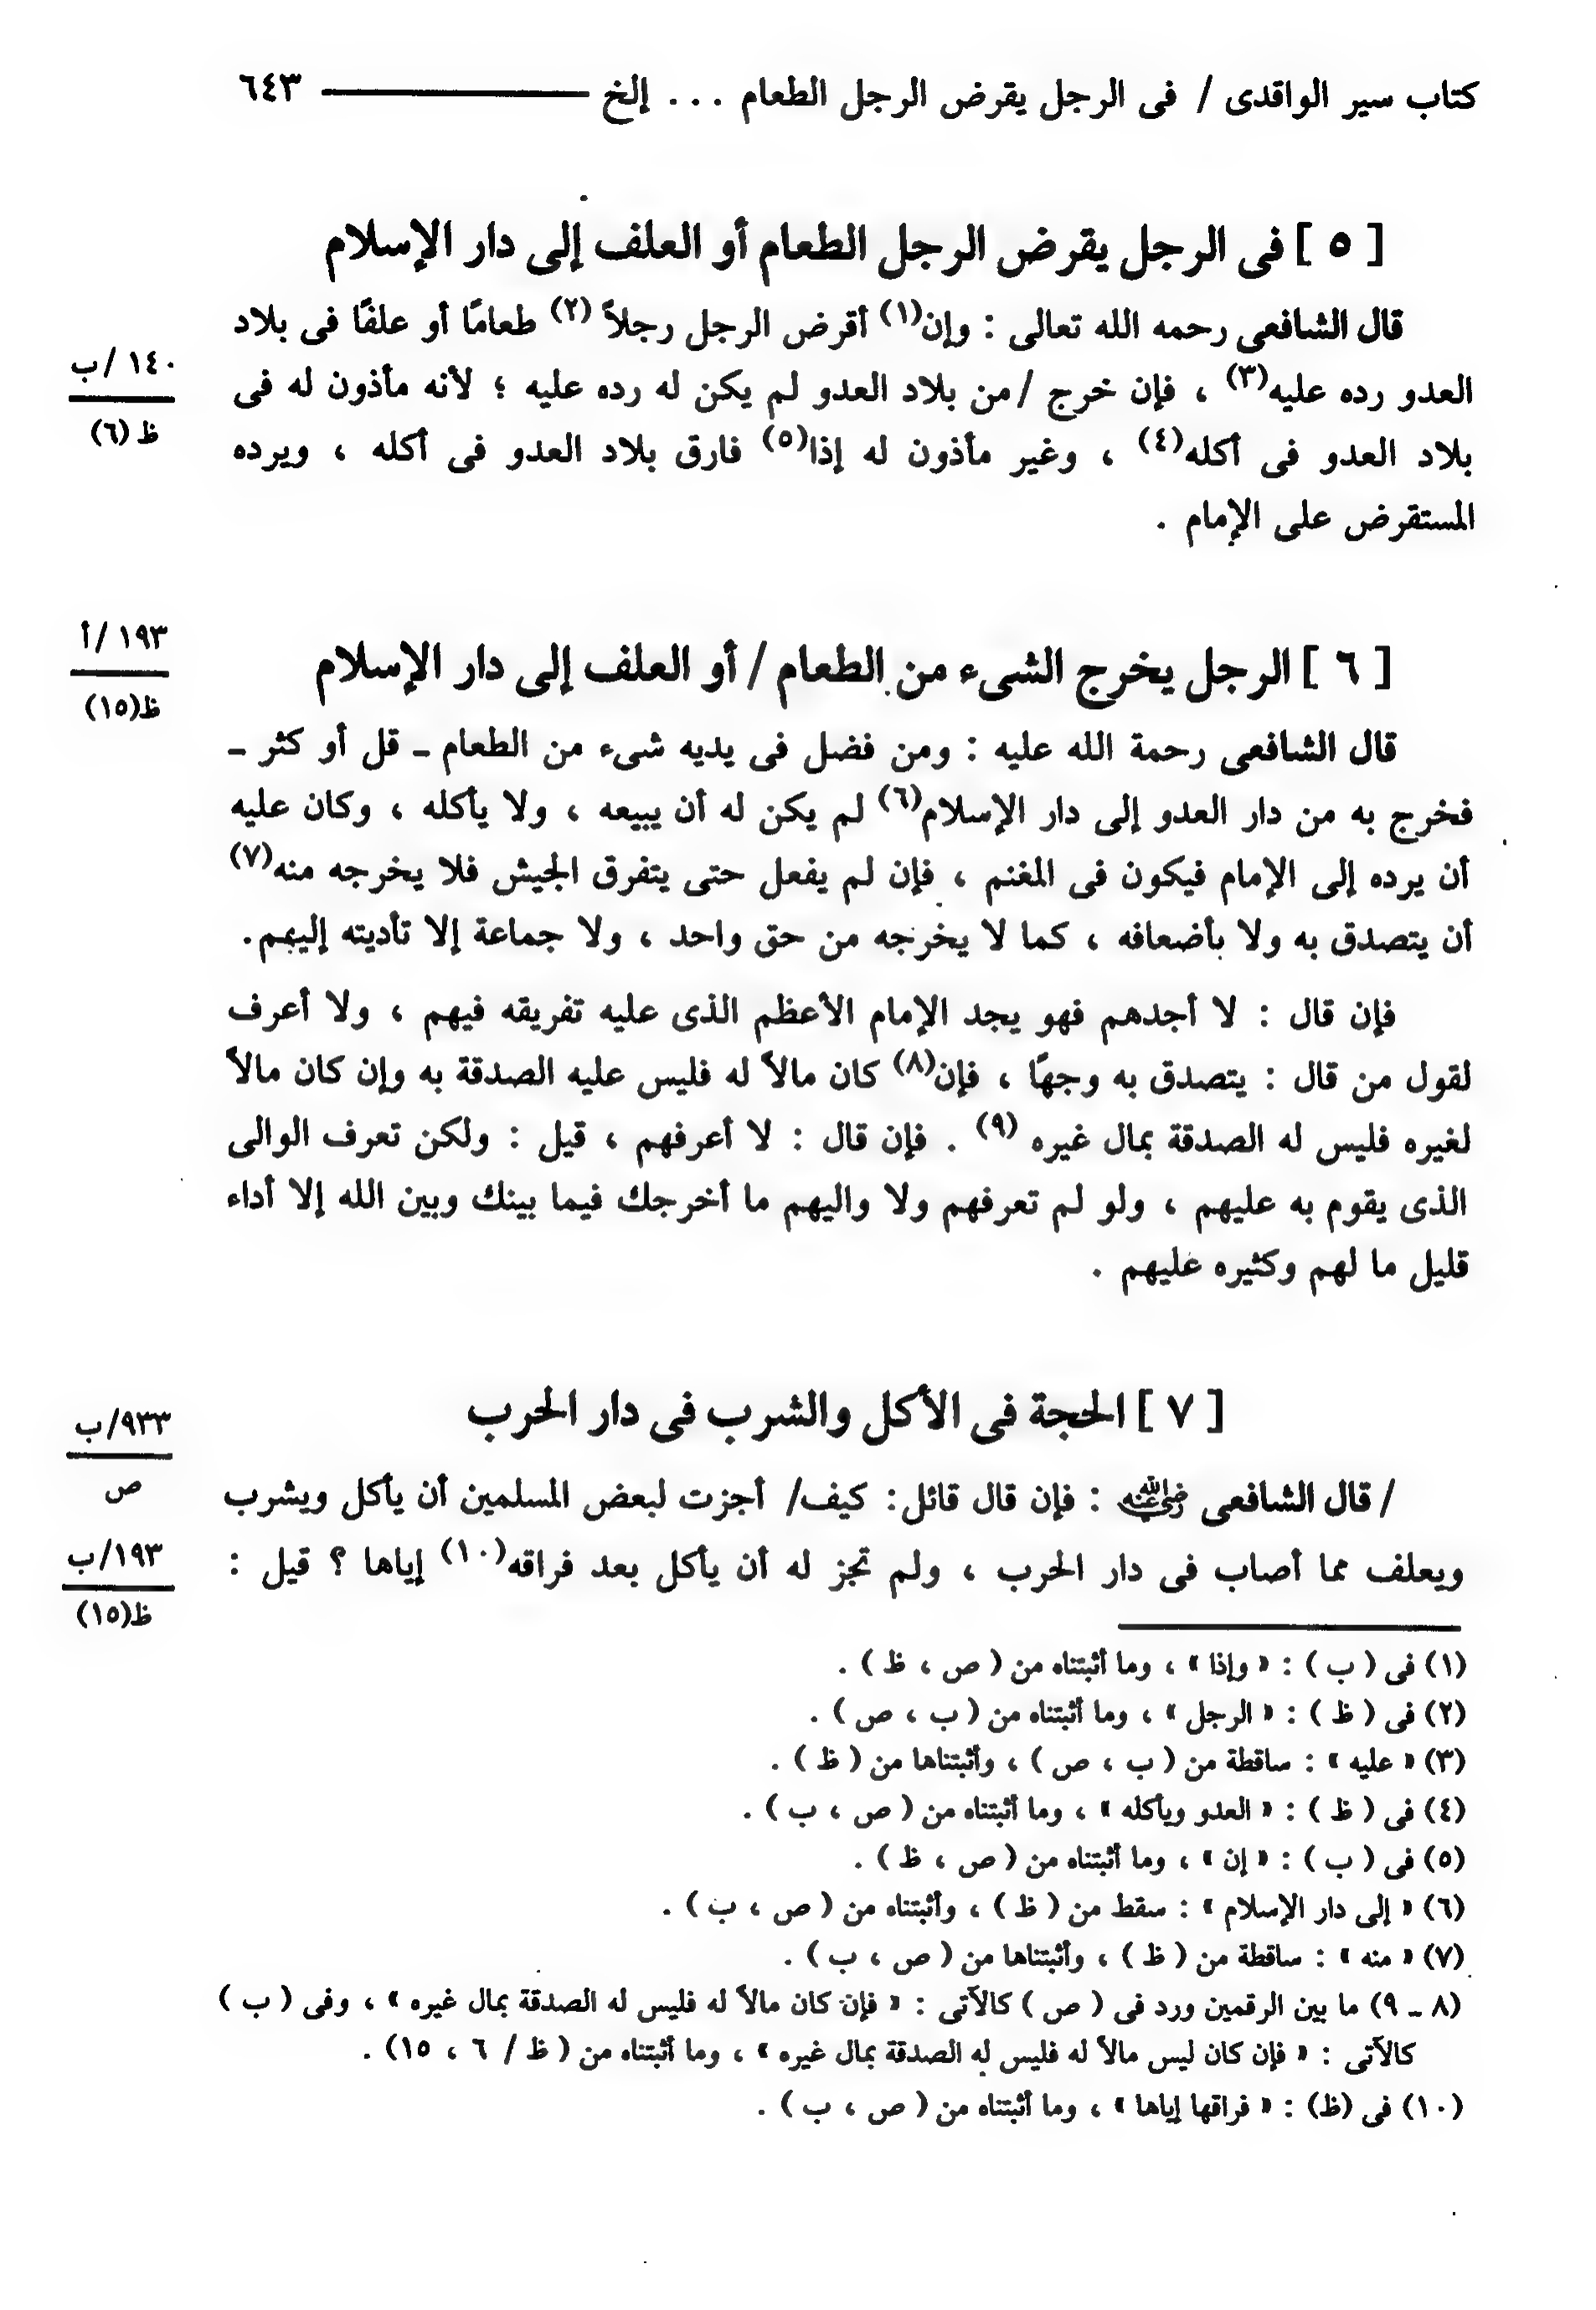 كتاب سير الواقدى / فى الرجل يقرض الرجل الطعام ... إلخ ـــــــ ٦٤٣
[ ٥ ] فى الرجل يقرض الرجل الطعام أو العلف إلى دار الإسلام
قال الشافعى رحمه الله تعالى : وإن(١) أقرض الرجل رجلاً (٢) طعامًا أو علفًا فى بلاد
العدو رده عليه(٣) ، فإن خرج /من بلاد العدو لم يكن له رده عليه ؛ لأنه مأذون له فى
١٤٠ /ب
ظ (٦)
بلاد العدو فى أكله(٤) ، وغير مأذون له إذا(٥) فارق بلاد العدو فى أكله ، ويرده
المستقرض على الإمام .
[ ٦ ] الرجل يخرج الشىء من الطعام / أو العلف إلى دار الإسلام
١٩٣ /أ
ظ(١٥)
قال الشافعى رحمة الله عليه : ومن فضل فى يديه شىء من الطعام ـ قل أو كثر ـ
فخرج به من دار العدو إلى دار الإسلام(٦) لم يكن له أن يبيعه ، ولا يأكله ، وكان عليه
أن يرده إلى الإمام فيكون فى المغنم ، فإن لم يفعل حتى يتفرق الجيش فلا يخرجه منه(٧)
أن يتصدق به ولا بأضعافه ، كما لا يخرجه من حق واحد ، ولا جماعة إلا تأديته إليهم.
فإن قال : لا أجدهم فهو يجد الإمام الأعظم الذى عليه تفريقه فيهم ، ولا أعرف
لقول من قال : يتصدق به وجهًا ، فإن(٨) كان مالاً له فليس عليه الصدقة به وإن كان مالاً
لغيره فليس له الصدقة بمال غيره (٩) . فإن قال : لا أعرفهم ، قيل : ولكن تعرف الوالى
الذى يقوم به عليهم ، ولو لم تعرفهم ولا واليهم ما أخرجك فيما بينك وبين الله إلا أداء
قليل ما لهم وكثيره عليهم .
[ ٧ ] الحجة فى الأكل والشرب فى دار الحرب
٩٣٣/ب
ص
/ قال الشافعى رضي الله عنه : فإن قال قائل: كيف/ أجزت لبعض المسلمين أن يأكل ويشرب
ويعلف مما أصاب فى دار الحرب ، ولم تجز له أن يأكل بعد فراقه(١٠) إياها ؟ قيل :
١٩٣/ب
ظ(١٥)
(١) فى ( ب ) : « وإذا » ، وما أثبتناه من ( ص ، ظ ) .
(٢) فى ( ظ ) : « الرجل » ، وما أثبتناه من ( ب ، ص ) .
(٣) « عليه » : ساقطة من ( ب ، ص ) ، وأثبتناها من ( ظ ) .
(٤) فى ( ظ ) : « العدو ويأكله » ، وما أثبتناه من ( ص ، ب ) .
(٥) فى ( ب ) : « إن » ، وما أثبتناه من ( ص ، ظ ) .
(٦) « إلى دار الإسلام » : سقط من ( ظ ) ، وأثبتناه من ( ص ، ب ) .
(٧) « منه » : ساقطة من ( ظ ) ، وأثبتناها من ( ص ، ب ) .
(٨ ـ ٩) ما بين الرقمين ورد فى ( ص ) كالآتى : « فإن كان مالاً له فليس له الصدقة بمال غيره » ، وفى ( ب )
كالآتى : « فإن كان ليس مالاً له فليس له الصدقة بمال غيره » ، وما أثبتناه من ( ظ / ٦ ، ١٥) .
(١٠) فى (ظ) : « فراقها إياها » ، وما أثبتناه من ( ص ، ب ) .